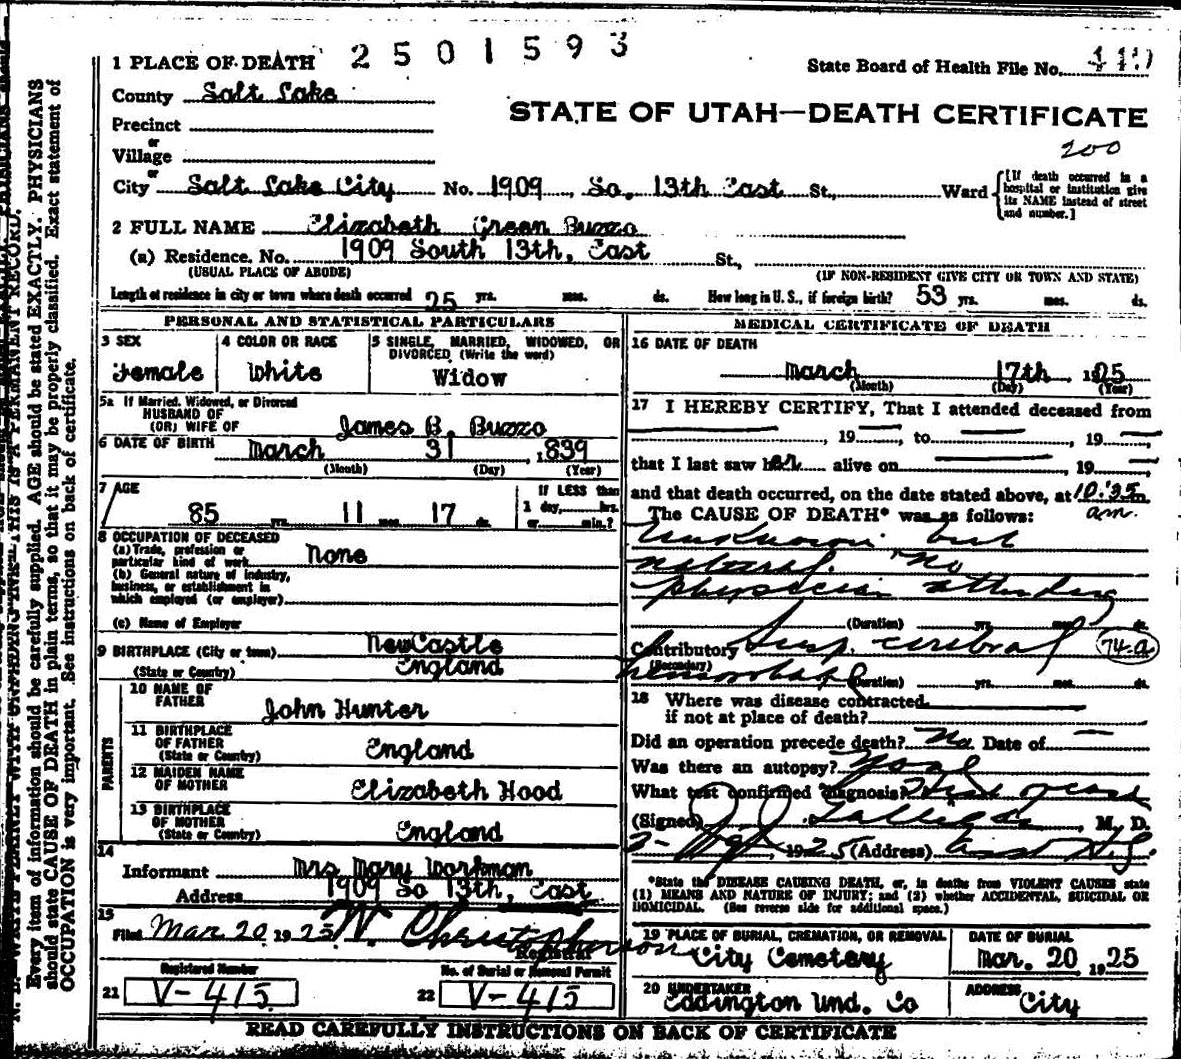 2501593
1 PLACE OF DEATH
State Board of Health File No.
County Salt Lake
STATE OF UTAH—DEATH CERTIFICATE
Precinct
or
Village
200
or
City Salt Lake City No. 1909 So. 13th East St., Ward
[If death occurred in a hospital or institution give its NAME instead of street and number.]
2 FULL NAME Elizabeth Green Buzzo
(a) Residence. No. 1909 South 13th, East St.,
(USUAL PLACE OF ABODE) (IF NON-RESIDENT GIVE CITY OR TOWN AND STATE)
Length of residence in city or town where death occurred 25 yrs. mos. ds. How long in U. S., if foreign birth? 53 yrs. mos. ds.
PERSONAL AND STATISTICAL PARTICULARS
3 SEX
Female
4 COLOR OR RACE
White
5 SINGLE, MARRIED, WIDOWED, OR DIVORCED, (Write the word)
Widow
5a If Married, Widowed, or Divorced
HUSBAND OF
(OR) WIFE OF James B. Buzzo
6 DATE OF BIRTH March 31, 1839
(Month) (Day) (Year)
7 AGE
85 yrs. 11 mos. 17 ds.
If LESS than
1 day, hrs.
or min.?
8 OCCUPATION OF DECEASED
(a) Trade, profession or
particular kind of work None
(b) General nature of industry,
business, or establishment in
which employed (or employer)
(c) Name of Employer
9 BIRTHPLACE (City or town) NewCastle
(State or Country) England
PARENTS
10 NAME OF
FATHER John Hunter
11 BIRTHPLACE
OF FATHER
(State or Country) England
12 MAIDEN NAME
OF MOTHER Elizabeth Hood
13 BIRTHPLACE
OF MOTHER
(State or Country) England
14
Informant Mrs Mary Workman
Address 1909 So 13th, East
15
Filed Mar 20 1925 W. Christopherson
Registrar
Registered Number
21 V-415
No. of Burial or Removal Permit
22 V-415
MEDICAL CERTIFICATE OF DEATH
16 DATE OF DEATH
March 17th 1925
(Month) (Day) (Year)
17 I HEREBY CERTIFY, That I attended deceased from
, 19 , to , 19
that I last saw her alive on , 19
and that death occurred, on the date stated above, at 10:35 m
am.
The CAUSE OF DEATH* was as follows:
Unknown but
natural. No
physician attending
(Duration) yrs. mos. ds.
Contributory Susp. cerebral 74-a
(Secondary) hemorrhage (Duration) yrs. mos. ds.
18 Where was disease contracted
if not at place of death?
Did an operation precede death? No Date of
Was there an autopsy?
What test confirmed diagnosis?
(Signed) , M. D.
, 1925 (Address)
*State the DISEASE CAUSING DEATH, or, in deaths from VIOLENT CAUSES state
(1) MEANS AND NATURE OF INJURY; and (2) whether ACCIDENTAL, SUICIDAL OR
HOMICIDAL. (See reverse side for additional space.)
19 PLACE OF BURIAL, CREMATION, OR REMOVAL
City Cemetery
DATE OF BURIAL
Mar. 20, 1925
20 UNDERTAKER
Eddington Und. Co
ADDRESS
City
READ CAREFULLY INSTRUCTIONS ON BACK OF CERTIFICATE
Every item of information should be carefully supplied. AGE should be stated EXACTLY. PHYSICIANS
should state CAUSE OF DEATH in plain terms, so that it may be properly classified. Exact statement of
OCCUPATION is very important. See instructions on back of certificate.